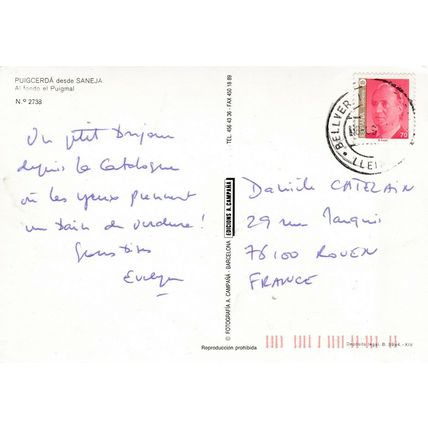 PUIGCERDÁ desde SANEJA
Al fondo el Puigmal
N.º 2738
Un ptit bonjour
depuis la Catalogne
où les yeux prennent
un bain de verdure !
Gros bises
Evelyne
TEL. 456 43 36 - FAX 450 18 89
EDICIONS A. CAMPAÑA
© FOTOGRAFÍA A. CAMPAÑA - BARCELONA
Reproducción prohibida
BELLVER
LLEI
70
Daniele CATELAIN
29 rue Janquis
76100 ROUEN
FRANCE